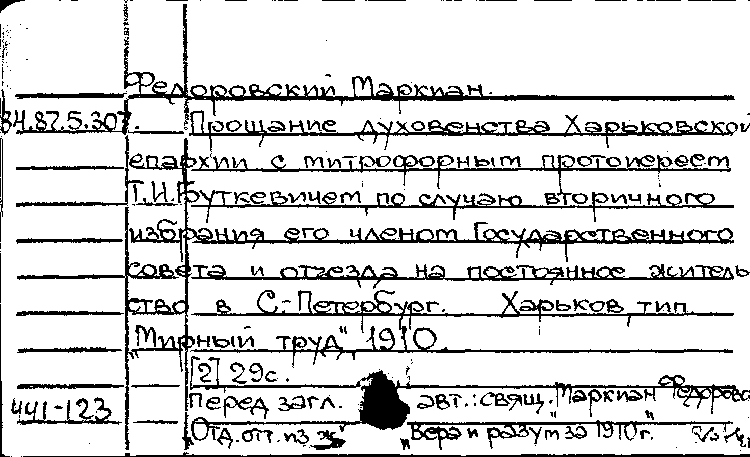 Федоровский, Маркиан.
34.87.5.307. Прощание духовенства Харьковской
епархии с митрофорным протоиереем
Т.И.Буткевичем, по случаю вторичного
избрания его членом Государственного
совета и отъезда на постоянное житель-
ство в С.-Петербург. Харьков, тип.
"Мирный труд", 1910.
[2] 29с.
441-123 Перед загл. авт.: свящ. Маркиан Федоровс
"Отд. отт. из ж." "Вера и разум" за 1910г."